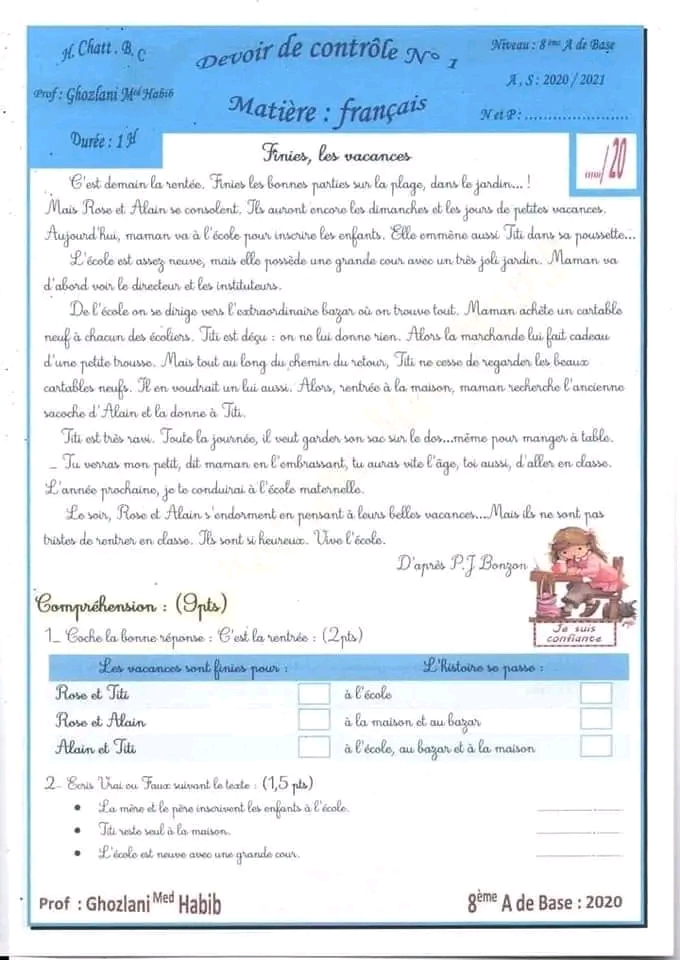 H. Chatt. B, C
Devoir de contrôle N° 1
Niveau : 8 ème A de Base
Prof : Ghozlani Med Habib
Matière : français
A, S : 2020 / 2021
N et P : .......................
Durée : 1H
...../20
Finies, les vacances
C'est demain la rentée. Finies les bonnes parties sur la plage, dans le jardin... !
Mais Rose et Alain se consolent. Ils auront encore les dimanches et les jours de petites vacances.
Aujourd'hui, maman va à l'école pour inscrire les enfants. Elle emmène aussi Titi dans sa poussette...
L'école est assez neuve, mais elle possède une grande cour avec un très joli jardin. Maman va
d'abord voir le directeur et les instituteurs.
De l'école on se dirige vers l'extraordinaire bazar où on trouve tout. Maman achète un cartable
neuf à chacun des écoliers. Titi est déçu : on ne lui donne rien. Alors la marchande lui fait cadeau
d'une petite trousse. Mais tout au long du chemin du retour, Titi ne cesse de regarder les beaux
cartables neufs. Il en voudrait un lui aussi. Alors, rentrée à la maison, maman recherche l'ancienne
sacoche d'Alain et la donne à Titi.
Titi est très ravi. Toute la journée, il veut garder son sac sur le dos...même pour manger à table.
_ Tu verras mon petit, dit maman en l'embrassant, tu auras vite l'âge, toi aussi, d'aller en classe.
L'année prochaine, je te conduirai à l'école maternelle.
Le soir, Rose et Alain s'endorment en pensant à leurs belles vacances...Mais ils ne sont pas
tristes de rentrer en classe. Ils sont si heureux. Vive l'école.
D'après P.J Bonzon
Je suis
confiante
Compréhension : (9pts)
1_ Coche la bonne réponse : C'est la rentrée : (2pts)
Les vacances sont finies pour : L'histoire se passe :
Rose et Titi à l'école
Rose et Alain à la maison et au bazar
Alain et Titi à l'école, au bazar et à la maison
2- Ecris Vrai ou Faux suivant le texte : (1,5 pts)
• La mère et le père inscrivent les enfants à l'école. ______________
• Titi reste seul à la maison. ______________
• L'école est neuve avec une grande cour. ______________
Prof : Ghozlani Med Habib 8ème A de Base : 2020